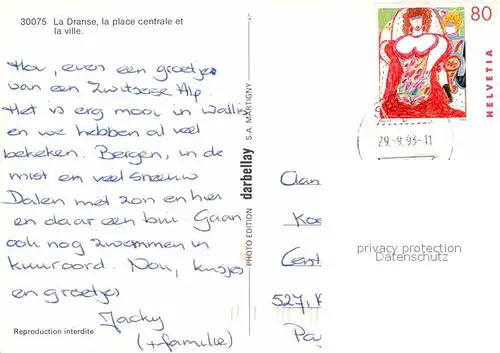 30075 La Dranse, la place centrale et
la ville.
Hoi, even een groetjes
van een Zwitserse Alp.
Het is erg mooi in Wallis
en we hebben al veel
bekeken. Bergen, in de
mist en veel sneeuw
Dalen met zon en hier
en daar een bui. Gaan
ook nog zwemmen in
kuuroord. Nou, kusjes
en groetjes
Jacky
(+familie)
Reproduction interdite
PHOTO EDITION darbellay S.A. MARTIGNY
80
HELVETIA
29.-9.93-11
privacy protection
Datenschutz
527,